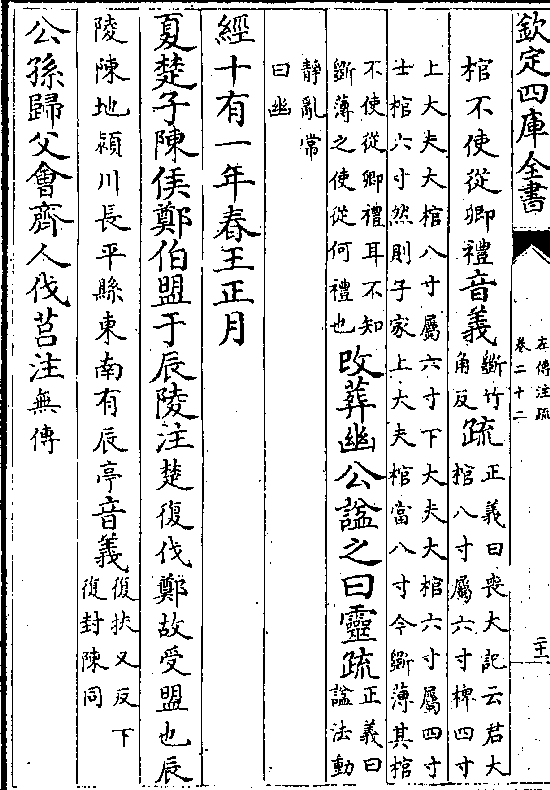 欽定四庫全書
左傳注疏
卷二十二
二十一
棺不使從卿禮音義斵竹角反疏正義曰喪大記云君大棺八寸屬六寸椑四寸
上大夫大棺八寸屬六寸下大夫大棺六寸屬四寸
士棺六寸然則子家上大夫棺當八寸今斵薄其棺
不使從卿禮耳不知斵薄之使從何禮也改葬幽公諡之曰靈疏正義曰諡法動
靜亂常曰幽
經十有一年春王正月
夏楚子陳侯鄭伯盟于辰陵注楚復伐鄭故受盟也辰
陵陳地潁川長平縣東南有辰亭音義復扶又反下復封陳同
公孫歸父會齊人伐莒注無傳